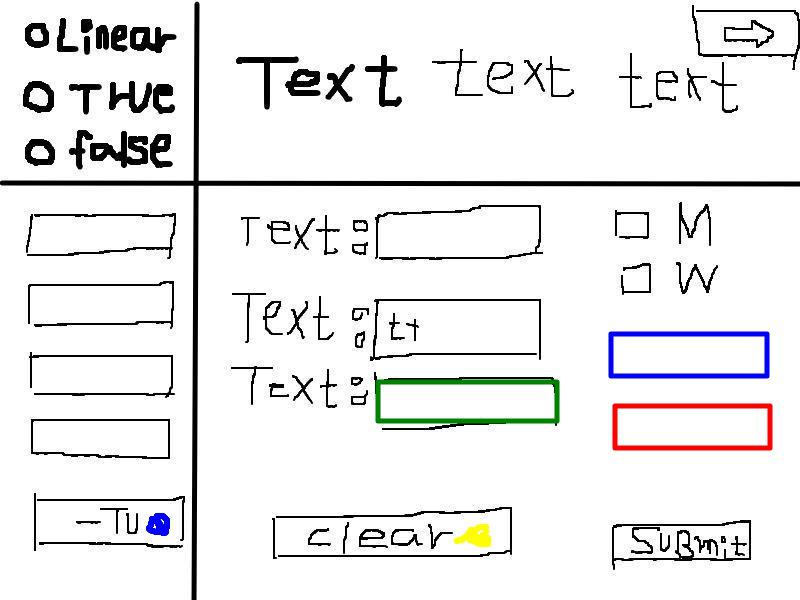 Linear
True
false
Text text text
Text:
M
W
Text: tt
Text:
-TU
clear
Submit